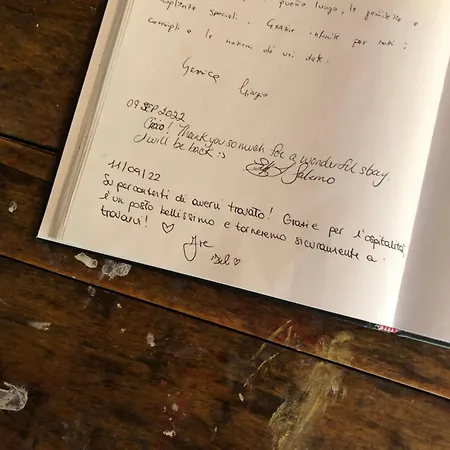 questo luogo, le gentilezze e
speciali. Grazie infinite per tutti i
consigli e le nozioni di voi dati.
09 SEP 2022
Ciao! Thank you so much for a wonderful stay.
I will be back :) Salerno
11/09/22
Super contenti di avervi trovato! Grazie per l'ospitalità,
è un posto bellissimo e torneremo sicuramente a
trovarvi! ♡